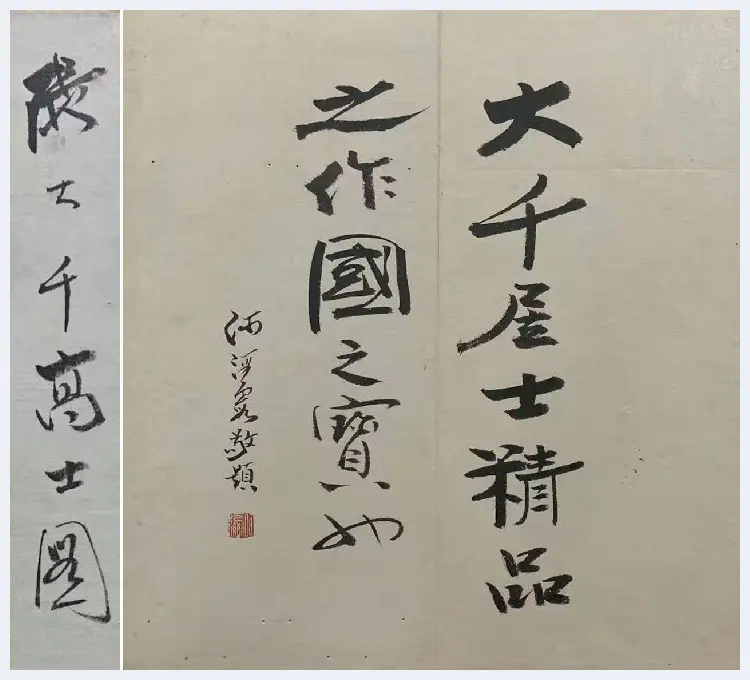 大千居士精品
之作國之寶也
敬題
張大千高士圖